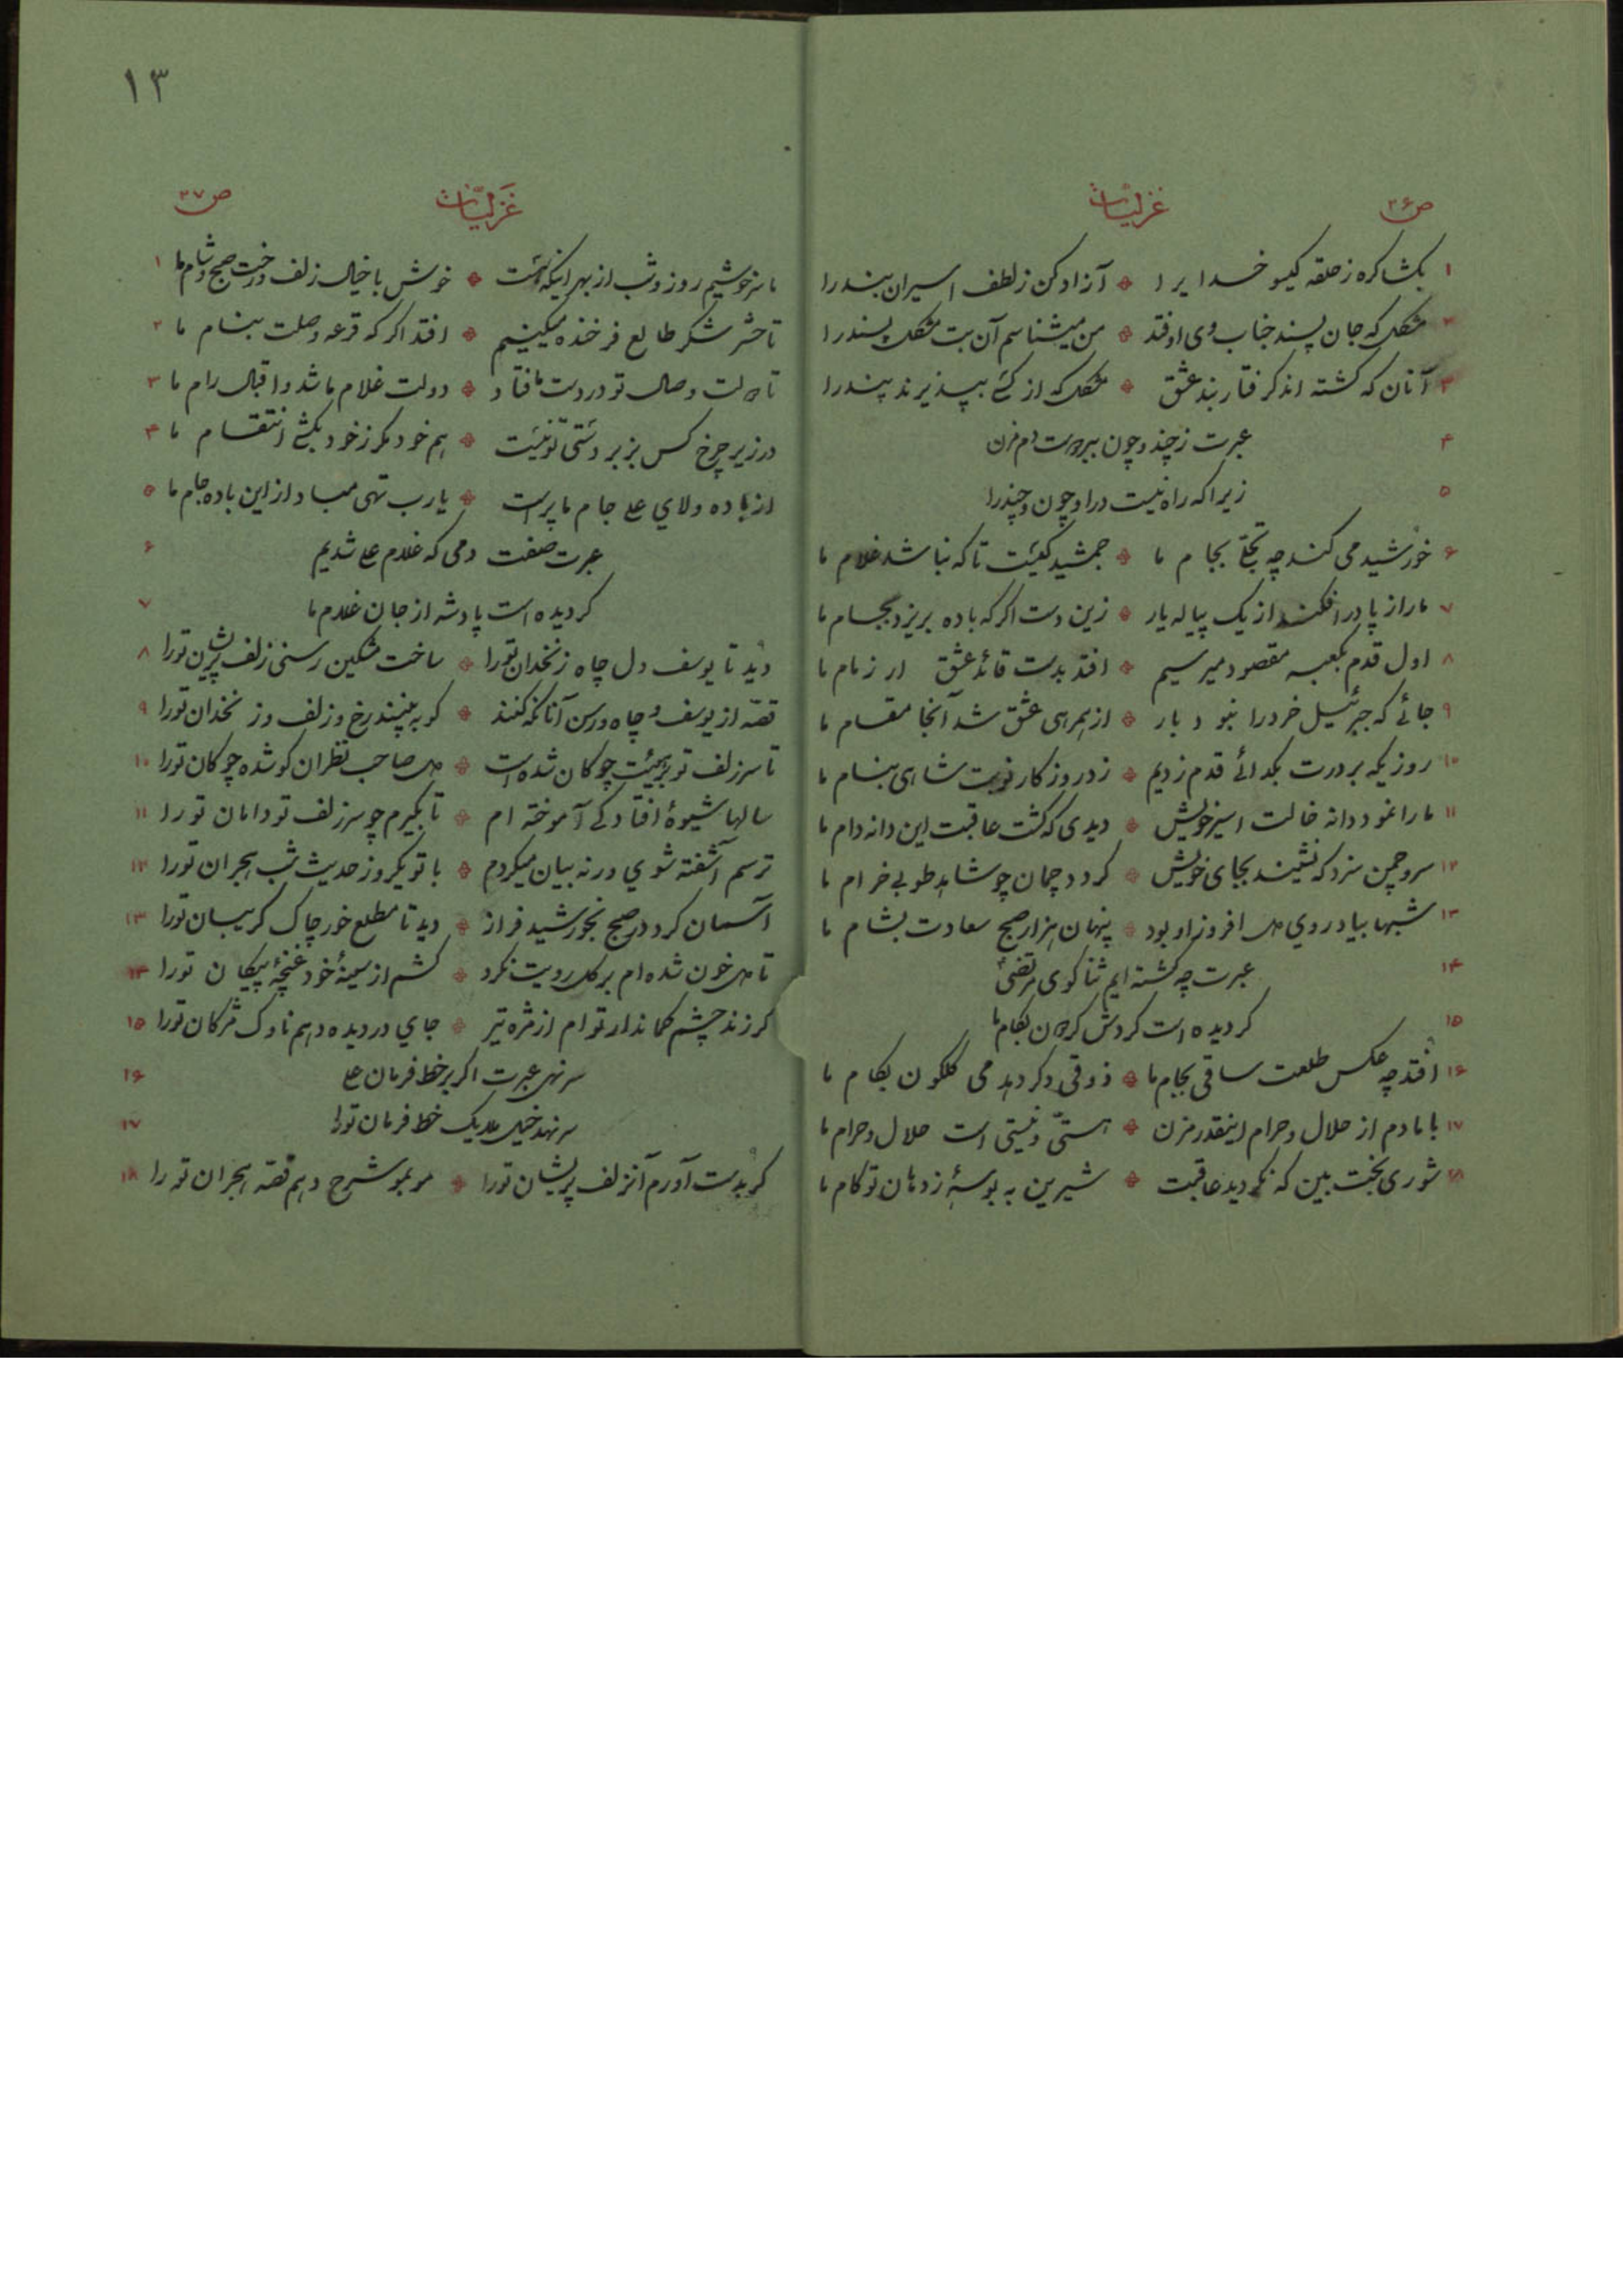 ص۳۶ غزلیات
۱ بگشا گره ز حلقه گیسو خدایرا * آزاد کن ز لطف اسیران بند را
۲ مشکل که جان پسند جناب وی اوفتد * من میشناسم آن بت مشکل پسند را
۳ آنان که گشته اند گرفتار بند عشق * مشکل که از کسی بپذیرند پند را
۴ عبرت ز چند و چون دم مزن
۵ زیرا که راه نیست در او چون و چند را
۶ خورشید می کند چه تجلی بجام ما * جمشید کیست تا که نباشد غلام ما
۷ ما را ز پا در افکند از یک پیاله یار * زین دست اگر که باده بریزد بجام ما
۸ اول قدم بکعبه مقصود میرسیم * افتد بدست قائد عشق ار زمام ما
۹ جائے که جبرئیل خرد را نبود بار * از همرهی عشق شد آنجا مقام ما
۱۰ روزیکه بر درت بگدائے قدم زدیم * زد روزگار نوبت شاهی بنام ما
۱۱ ما را نمود دانه خالت اسیر خویش * دیدی که گشت عاقبت این دانه دام ما
۱۲ سرو چمن سزد که نشیند بجای خویش * گردد چمان چو شاهد طوبی خرام ما
۱۳ شبها بیاد روی دل افروز او بود * پنهان هزار صبح سعادت بشام ما
۱۴ عبرت چه گشته ایم ثنا گوی مرتضی
۱۵ گردیده است گردش گردون بکام ما
۱۶ افتد چه عکس طلعت ساقی بجام ما * ذوقی دگر دهد می گلگون بکام ما
۱۷ با ما دم از حلال و حرام اینقدر مزن * هستی و نیستی است حلال و حرام ما
۱۸ شوری بخت بین که نگردید عاقبت * شیرین به بوسۀ ز دهان تو کام ما
۱۳
ص۳۷ غزلیات
ما سرخوشیم روز و شب از بهر اینکه هست * خوش با خیال زلف و رخت صبح و شام ما ۱
تا حشر شکر طالع فرخنده میکنیم * افتد اگر که قرعه وصلت بنام ما ۲
تا دولت وصال تو در دست ما فتاد * دولت غلام ما شد و اقبال رام ما ۳
در زیر چرخ کس بزبردستی تو نیست * هم خود مگر ز خود بکشی انتقام ما ۴
از باده ولای علی جام ما پر است * یا رب تهی مباد از این باده جام ما ۵
عبرت صفت دمی که غلام علی شدیم ۶
گردیده است پادشه از جان غلام ما ۷
دید تا یوسف دل چاه زنخدان تو را * ساخت مشکین رسنی زلف پریشان تو را ۸
قصه از یوسف و چاه و رسن آنانکه کنند * گو به بینند رخ و زلف و زنخدان تو را ۹
تا سر زلف تو بر هیئت چوگان شده است * دل صاحب نظران گو شده چوگان تو را ۱۰
سالها شیوۀ افتادگی آموخته ام * تا بگیرم چو سر زلف تو دامان تو را ۱۱
ترسم آشفته شوی ورنه بیان میکردم * با تو یکروز حدیث شب هجران تو را ۱۲
آسمان کرد در صبح بخورشید فراز * دید تا مطلع خور چاک گریبان تو را ۱۳
تا دل خون شده ام بر گل رویت نگرد * کشم از سینۀ خود غنچۀ پیکان تو را ۱۴
گر زند چشم کماندار تو ام از مژه تیر * جای در دیده دهم ناوک مژگان تو را ۱۵
سر نهی عبرت اگر بر خط فرمان علی ۱۶
سر نهد خیل ملایک خط فرمان تو را ۱۷
گر بدست آورم آنزلف پریشان تو را * مو بمو شرح دهم قصه هجران تو را ۱۸